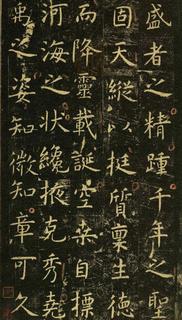 盛者之精踵千年之聖
固天縱以挺質稟生德
而降靈載誕空桑自標
河海之狀纔掖克秀堯
禹之姿知微知章可久